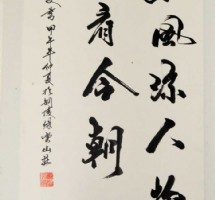 風流人物
看今朝
甲午年仲夏於
山莊